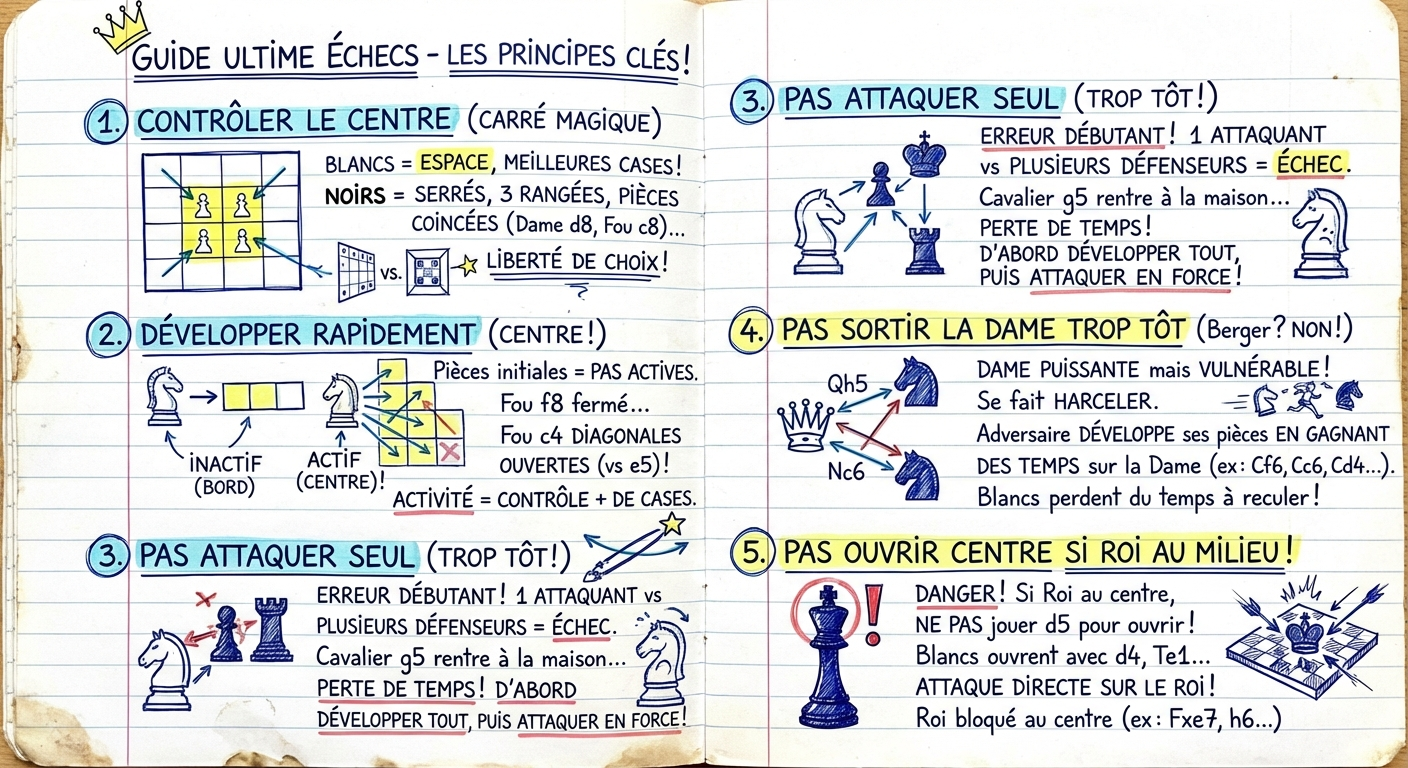 GUIDE ULTIME ÉCHECS - LES PRINCIPES CLÉS!
1. CONTRÔLER LE CENTRE (CARRÉ MAGIQUE)
BLANCS = ESPACE, MEILLEURES CASES!
NOIRS = SERRÉS, 3 RANGÉES, PIÈCES
COINCÉES (Dame d8, Fou c8)...
VS. LIBERTÉ DE CHOIX!
?
2. DÉVELOPPER RAPIDEMENT (CENTRE!)
Pièces initiales = PAS ACTIVES.
Fou f8 fermé...
Fou c4 DIAGONALES
OUVERTES (vs e5)!
INACTIF
(BORD)
ACTIF
(CENTRE)!
ACTIVITÉ = CONTRÔLE + DE CASES.
3. PAS ATTAQUER SEUL (TROP TÔT!)
ERREUR DÉBUTANT! 1 ATTAQUANT vs
PLUSIEURS DÉFENSEURS = ÉCHEC.
Cavalier g5 rentre à la maison...
PERTE DE TEMPS! D'ABORD
DÉVELOPPER TOUT, PUIS ATTAQUER EN FORCE!
3. PAS ATTAQUER SEUL (TROP TÔT!)
ERREUR DÉBUTANT! 1 ATTAQUANT
vs PLUSIEURS DÉFENSEURS = ÉCHEC.
Cavalier g5 rentre à la maison...
PERTE DE TEMPS!
D'ABORD DÉVELOPPER TOUT,
PUIS ATTAQUER EN FORCE!
4. PAS SORTIR LA DAME TROP TÔT (Berger? NON!)
Qh5
Nc6
DAME PUISSANTE mais VULNÉRABLE!
Se fait HARCELER.
Adversaire DÉVELOPPE ses pièces EN GAGNANT
DES TEMPS sur la Dame (ex: Cf6, Cc6, Cd4...).
Blancs perdent du temps à reculer!
5. PAS OUVRIR CENTRE SI ROI AU MILIEU!
!
DANGER! Si Roi au centre,
NE PAS jouer d5 pour ouvrir!
Blancs ouvrent avec d4, Te1...
ATTAQUE DIRECTE SUR LE ROI!
Roi bloqué au centre (ex: Fxe7, h6...)